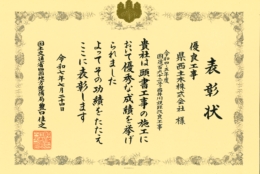 表彰状
優良工事
県西土木株式会社 様
貴社は頭書工事の施工に
おいて優秀な成績を挙げ
られました
よってその功績をたたえ
ここに表彰します
令和七年七月二十四日
国土交通省四国地方整備局長 豊口佳之